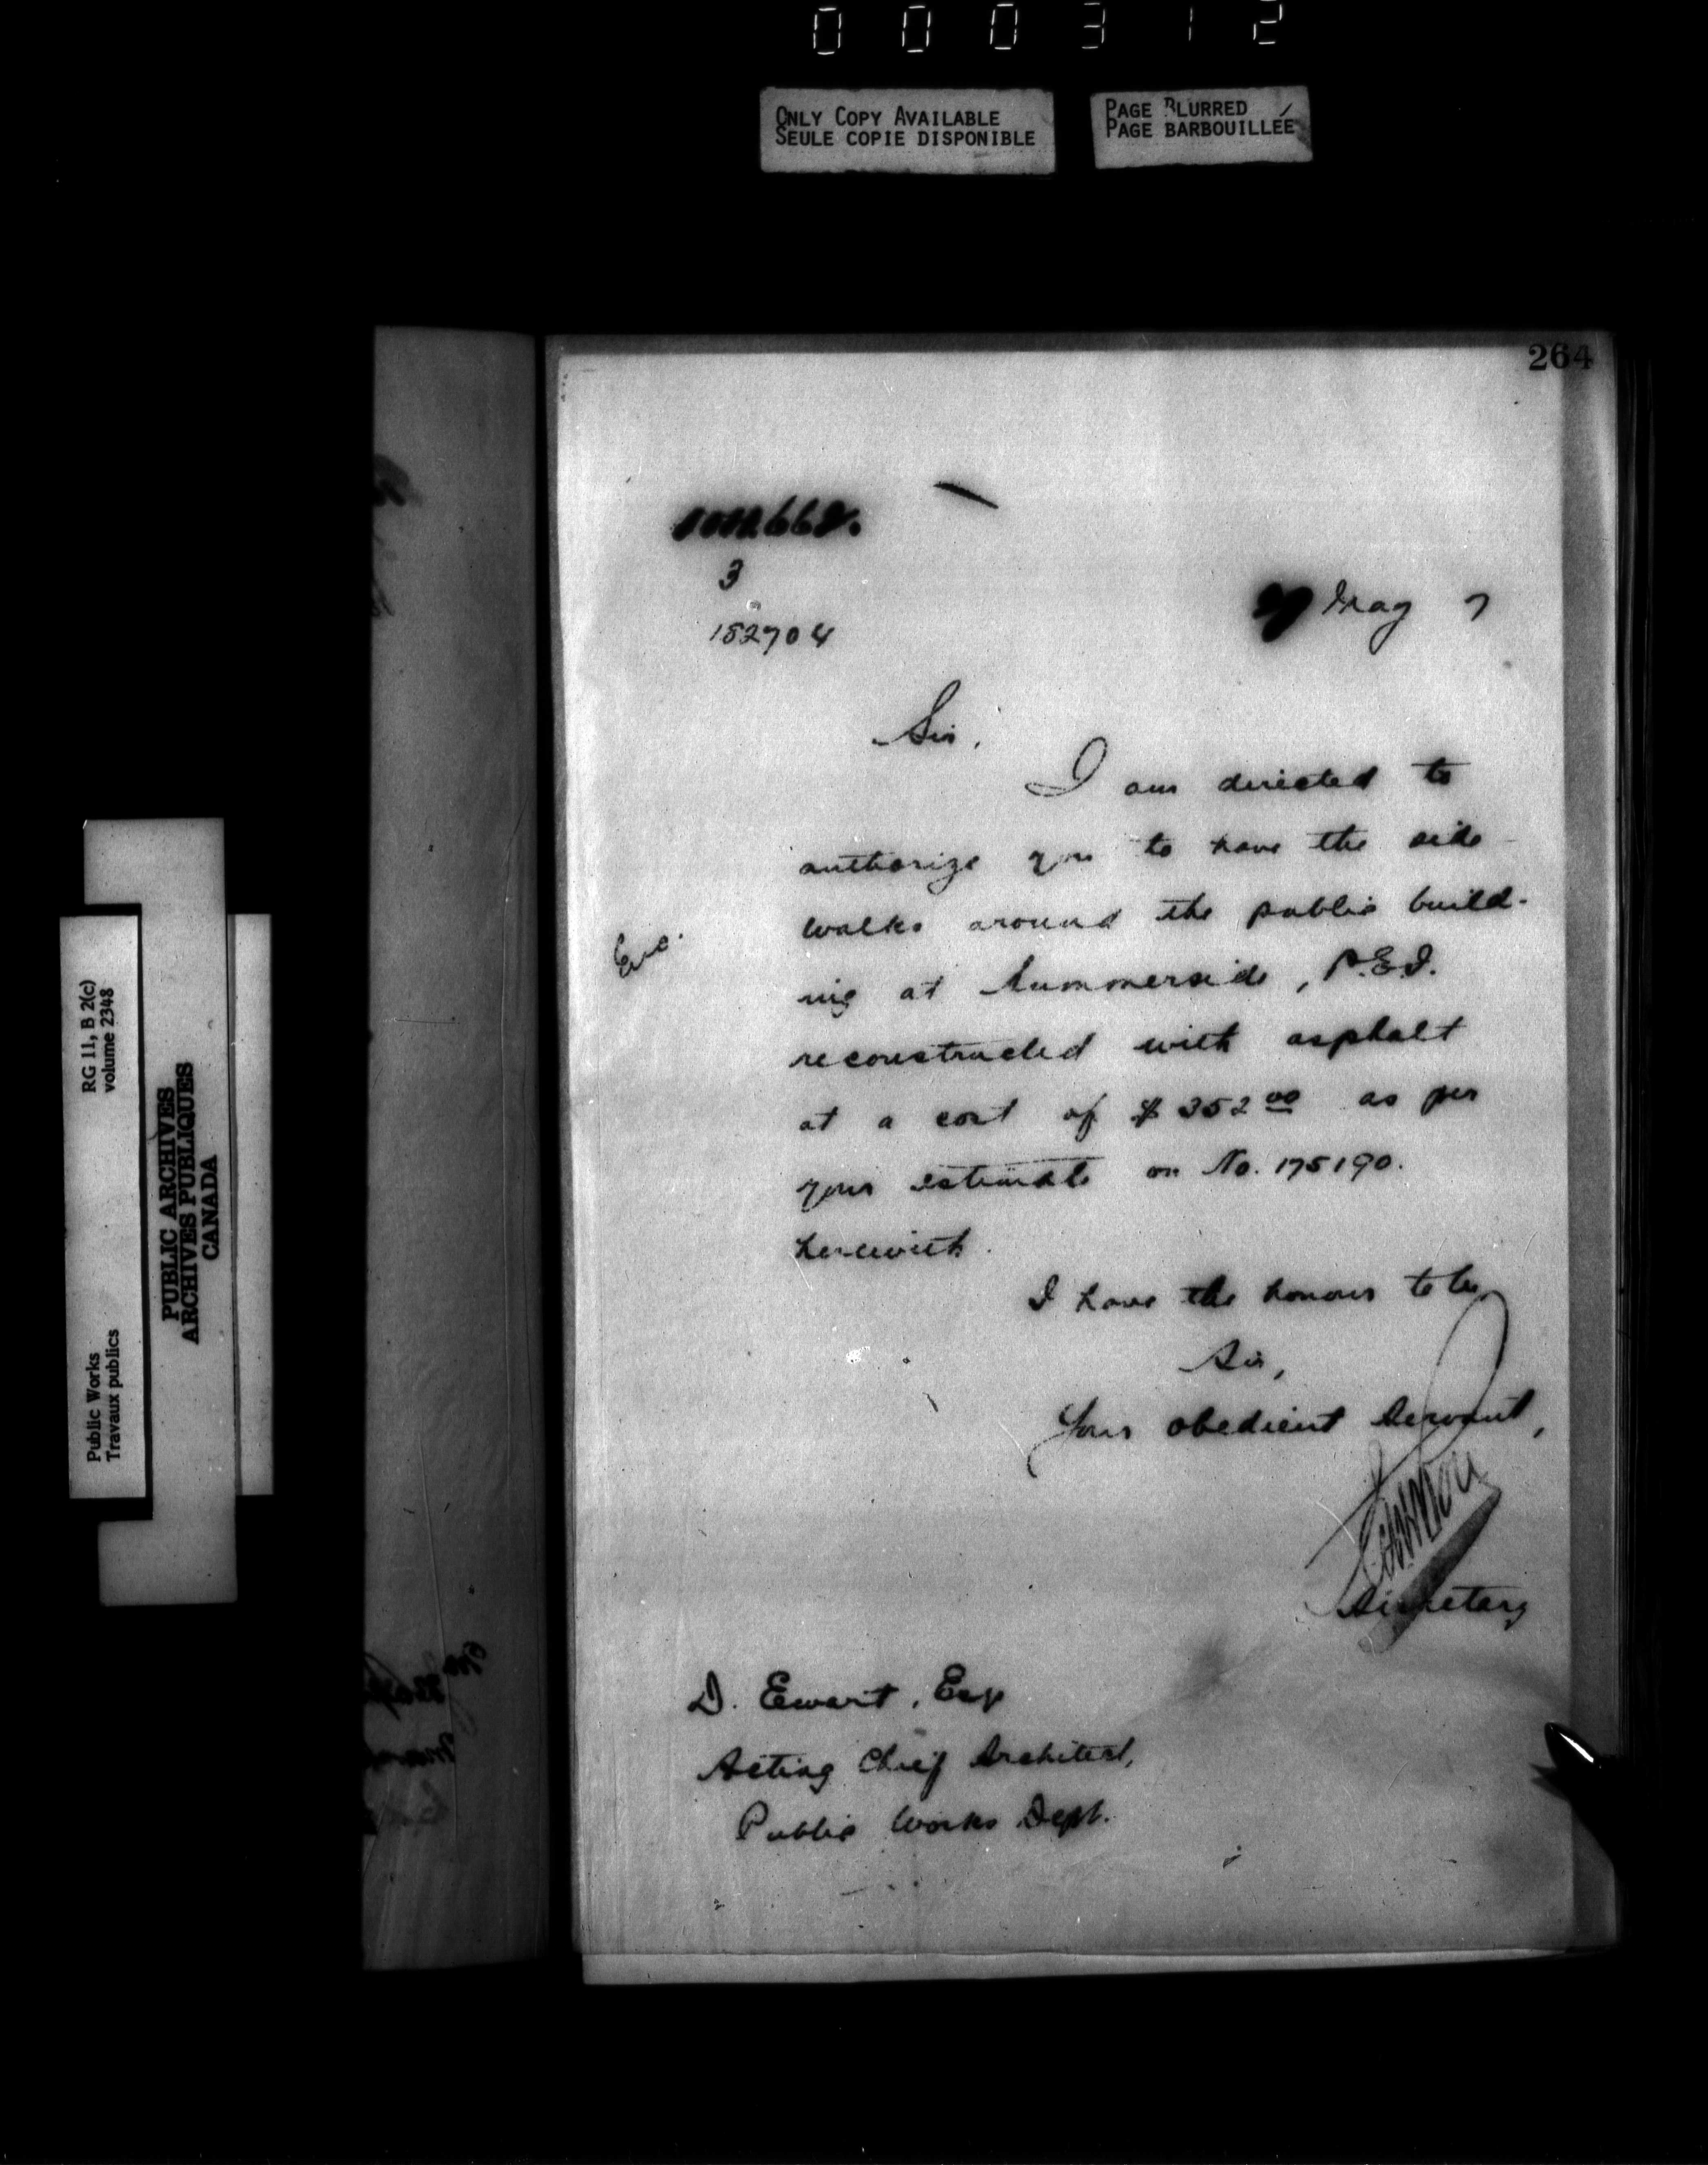 000312
ONLY COPY AVAILABLE
SEULE COPIE DISPONIBLE
PAGE BLURRED
PAGE BARBOUILLÉE
264
3
182704
May 7
Sir,
I am directed to
authorize you to have the side
walks around the public build-
ing at Summerside, P.E.I.
reconstructed with asphalt
at a cost of $352 00 as per
your estimate on No. 175190.
herewith.
Enc.
I have the honour to be
Sir,
Your obedient servant,
Secretary
D. Ewart, Esq
Acting Chief Architect,
Public Works Dept.
RG 11, B 2(c)
volume 2348
PUBLIC ARCHIVES
ARCHIVES PUBLIQUES
CANADA
Public Works
Travaux publics